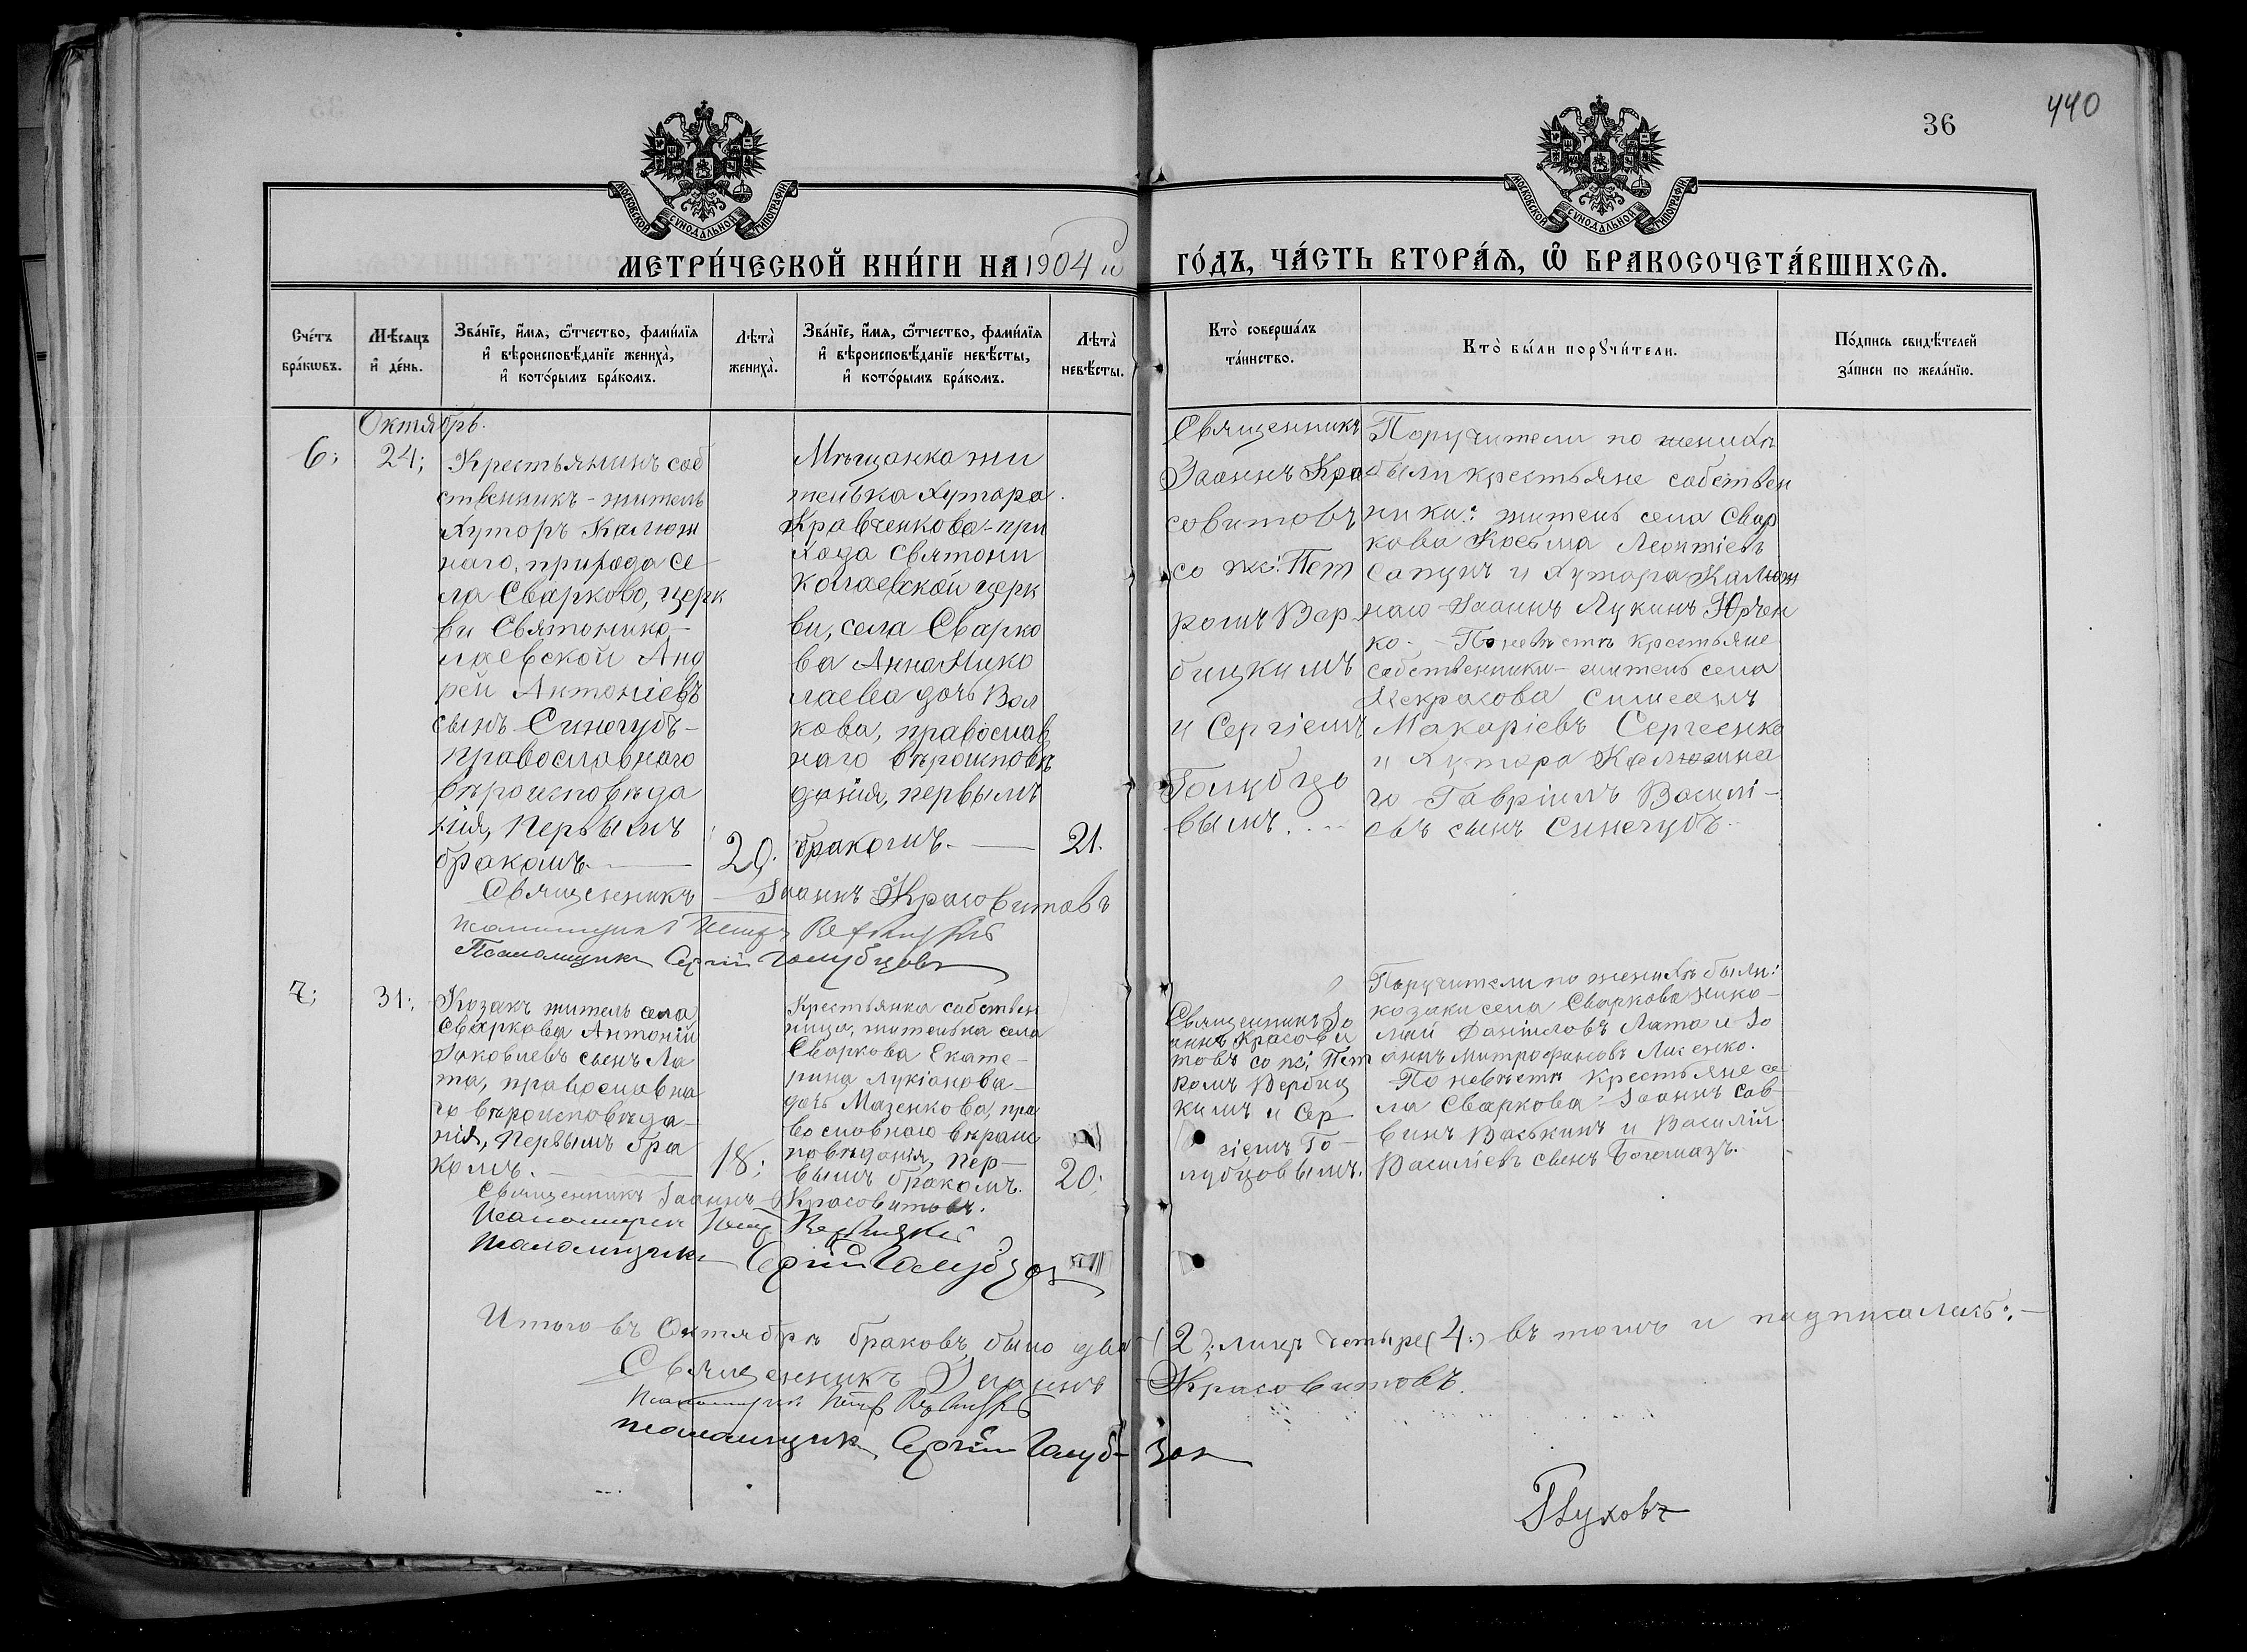 440
36
МОСКОВСКОЙ СѴНОДАЛЬНОЙ ТИПОГРАФІИ
МОСКОВСКОЙ СѴНОДАЛЬНОЙ ТИПОГРАФІИ
МЕТРИ́ЧЕСКОЙ КНИ́ГИ НА 1904 й ГО́ДЪ, ЧА́СТЬ ВТОРА́Ѧ, Ѿ БРАКОСОЧЕТА́ВШИХСѦ.
Сче́тъ
бра́кѡвъ.
Мѣ́сѧцъ
и҆ де́нь.
Зва́нїе, и҆́мѧ, ѻ҆́тчество, фами́лїѧ
и҆ вѣроисповѣ́данїе жениха̀,
и҆ кото́рымъ бра́комъ.
Лѣта̀
жениха̀.
Зва́нїе, и҆́мѧ, ѻ҆́тчество, фами́лїѧ
и҆ вѣроисповѣ́данїе невѣ́сты,
и҆ кото́рымъ бра́комъ.
Лѣта̀
невѣ́сты.
Кто̀ соверша́лъ
та́инство.
Кто̀ бы́ли порꙋчи́тели.
По́дпись свидѣ́телей
за́писи по жела́нїю.
Октябрь.
6;
24;
Крестьянинъ соб
ственникъ - житель
Хуторъ Калюж
наго, прихода се
ла Сварково, церк
ви Святонико-
лаевской Анд
рей Антоніевъ
сынъ Синегубъ -
православнаго
вѣроисповѣда
нія, первымъ
бракомъ.
29.
Мѣщанка жи
телька Хутора
Кравченкова - при
хода Святони
колаевской церк
ви, села Сварко
ва Анна Нико
лаева дочь Вол
кова, православ
наго вѣроисповѣ
данія, первымъ
бракомъ.
21.
Священникъ
Іоаннъ Кра
совитовъ
со пс: Пет
ромъ Вер
бицкимъ
и Сергіемъ
Голубцо
вымъ.
Поручители по женихѣ
были крестьяне собствен
ники: житель села Свар
кова Косьма Леонтіевъ
Сапунъ и Хутора Калюж
наго Іоаннъ Лукинъ Юрчен
ко - По невѣстѣ крестьяне
собственники - житель села
Некрасова Симеонъ
Макаріевъ Сергеенко
и Хутора Калюжна
го Гавріилъ Василі -
евъ сынъ Синегубъ.
Священникъ Іоаннъ Красовитовъ
Псаломщикъ Петръ Вербицкій
Псаломщикъ Сергій Голубцовъ
7;
31:
Козакъ житель села
Сваркова Антоній
Іаковлевъ сынъ Ла
та, православна
го вѣроисповѣда
нія, первымъ бра
комъ.
18;
Крестьянка собствен
ница, жителька села
Сваркова Екате -
рина Лукіанова
дочь Мазенкова, пра
вославнаго вѣроис
повѣданія, пер -
вымъ бракомъ.
20;
Священникъ Іо
аннъ Красови
товъ со пс; Пет
ромъ Вербиц
кимъ и Сер
гіемъ Го -
лубцовымъ.
Поручители по женихѣ были:
козаки села Сваркова Нико -
лай Даниловъ Лата и Іо
аннъ Митрофановъ Лисенко.
По невѣстѣ крестьяне се
ла Сваркова Іоаннъ Сав
винъ Васькинъ и Василій
Василіевъ сынъ Богомазъ.
Священникъ Іоаннъ Красовитовъ.
Псаломщикъ Петръ Вербицкій
Псаломщикъ Сергій Голубцовъ
Итого въ Октябрѣ браковъ было два (2); лицъ четыре (4:) въ томъ и подписались: -
Священникъ Іоаннъ Красовитовъ.
Псаломщикъ Петръ Вербицкій
Псаломщикъ Сергій Голубцовъ
Глуховъ